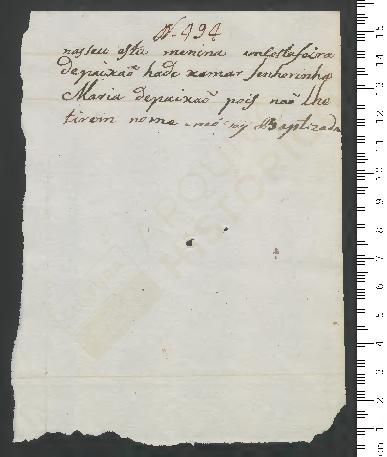 N. 494
nasseu esta menina
depaixaõ hade xamar Senhorinha
Maria depaixaõ pois naõ lhe
tirem nome Baptizada